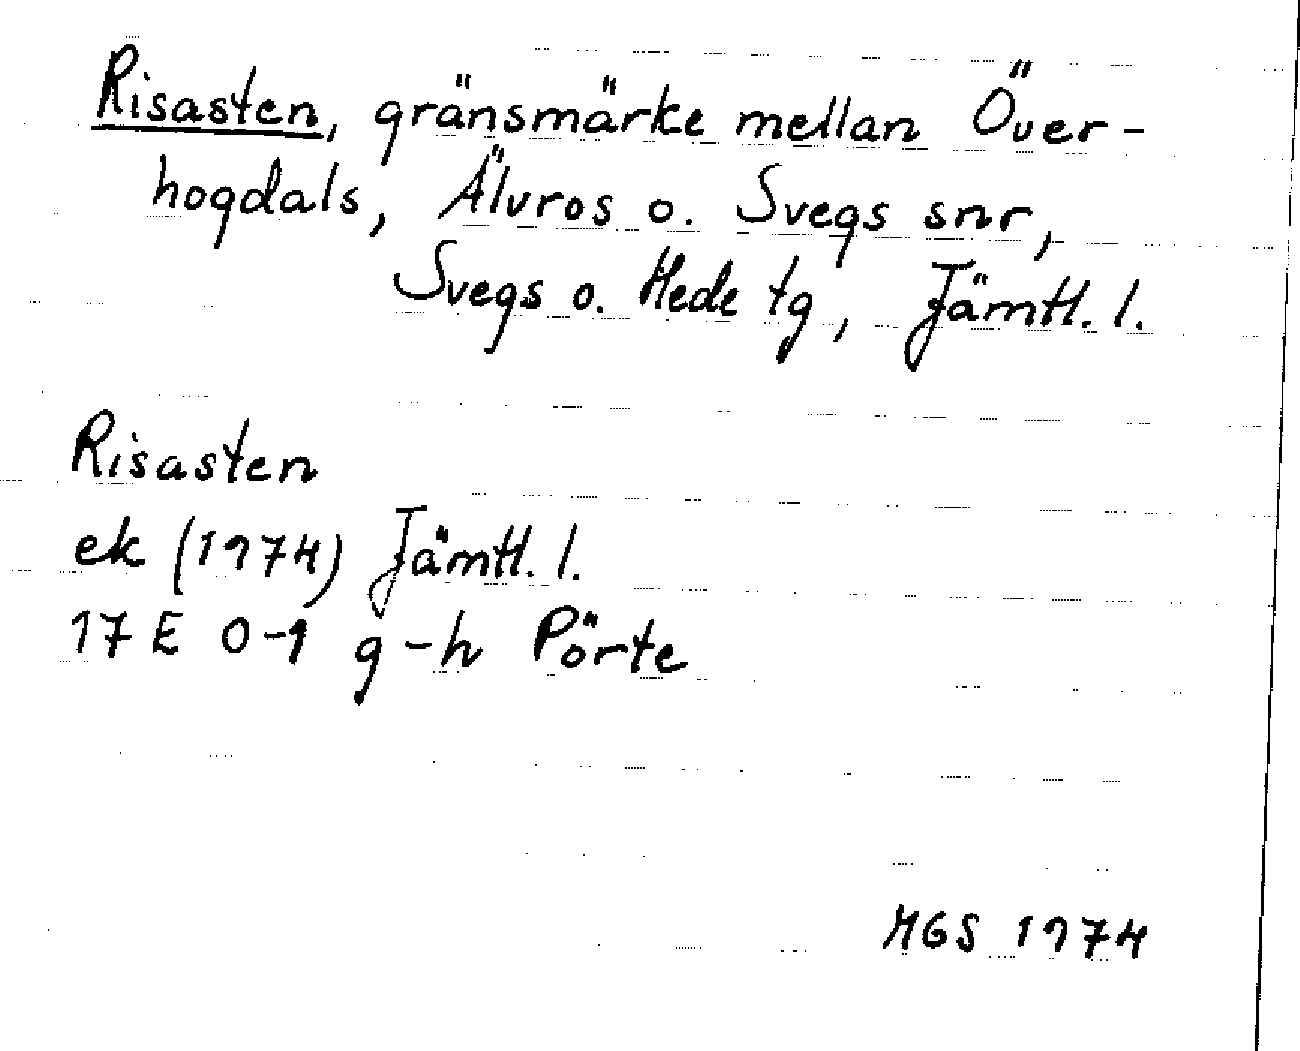 Risasten, gränsmärke mellan Över-
hogdals, Älvros o. Svegs snr,
Svegs o. Hede tg, Jämtl. l.
Risasten
ek (1974) Jämtl. l.
17 E 0-1 g-h Pörte
MGS 1974